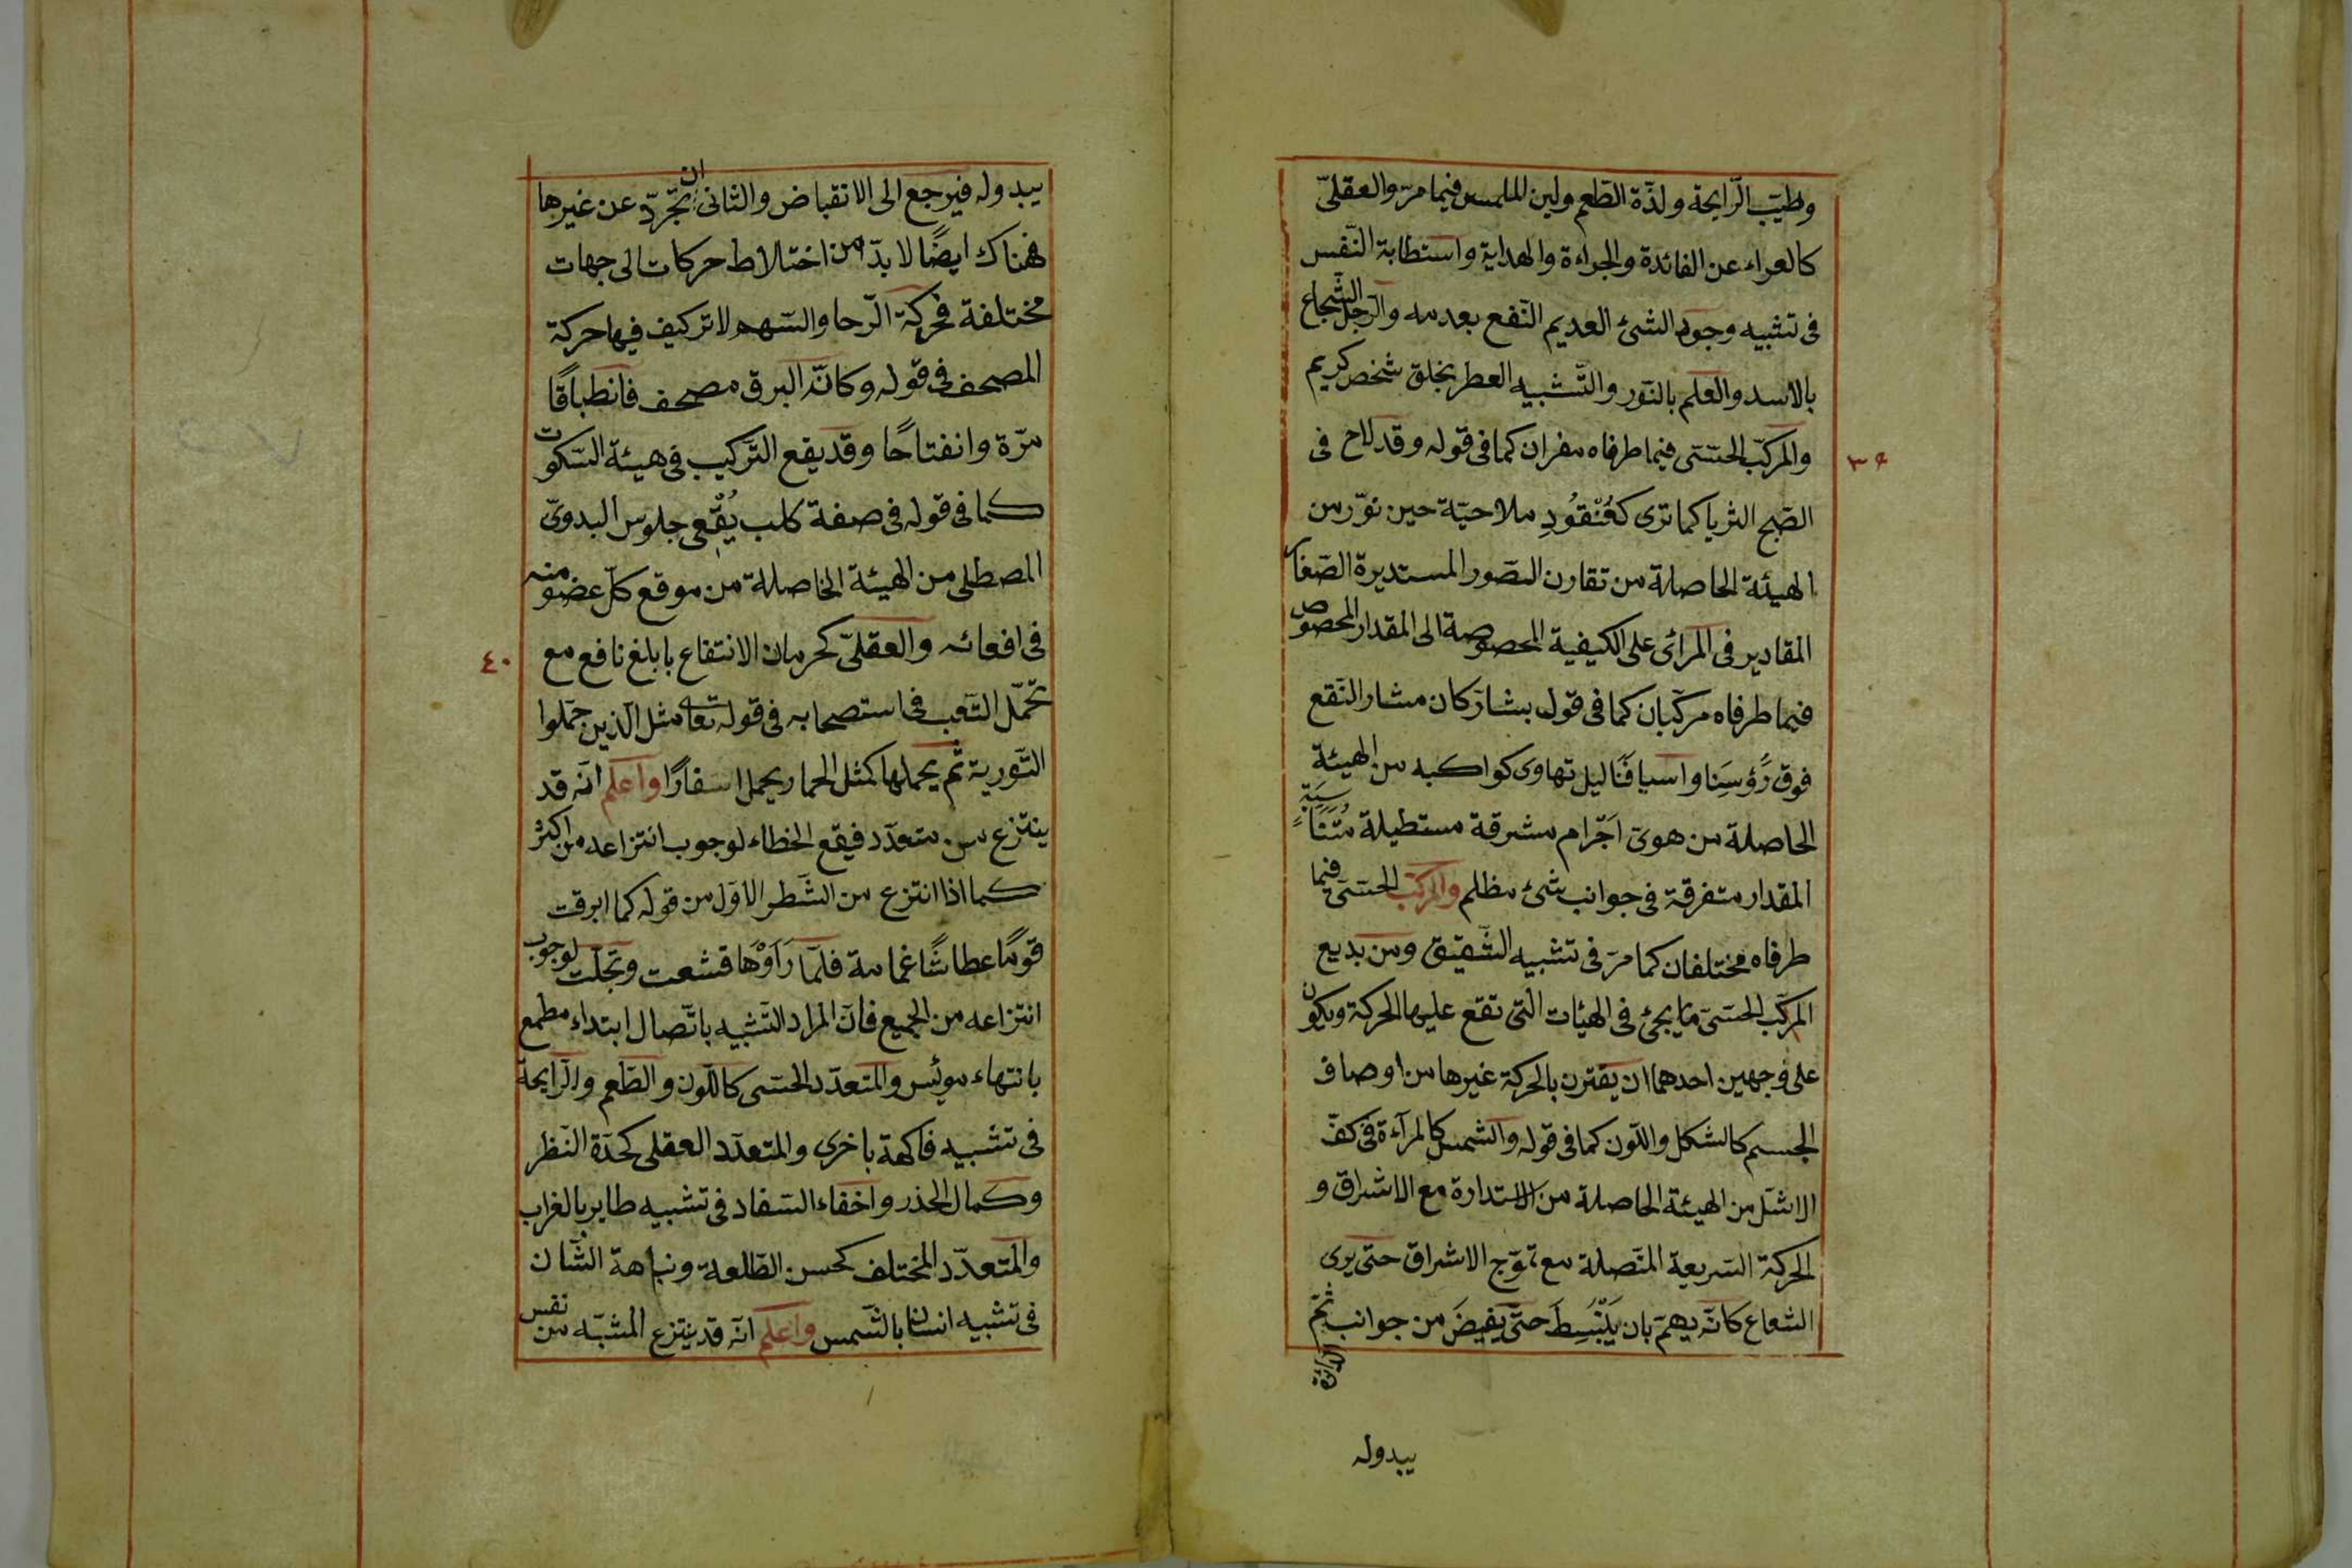 وطيب الرّايحة ولذّة الطّعم ولين الملمس فيما مرّ والعقلىّ
كالعراء عن الفائدة والجراءة والهداية واستطابة النّفس
فى تشبيه وجود الشئ العديم النّفع بعدمه والرّجل الشّجاع
بالاسد والعلم بالنّور والتّشبيه العطر بخلق شخص كريم
والمركّب الحسّى فيما طرفاه مفردان كما فى قوله وقد لاح فى
٣٩
الصّبح الثريا كما ترى كعُنْقُودِ ملاحيّة حين نوّر من
الهيئة الحاصلة من تقارن الصّور المستديرة الصّغار
المقادير فى المرأى على الكيفية المخصوصة الى المقدار المخصوص
فيما طرفاه مركّبان كما فى قول بشار كان مثار النّقع
فوق رُؤسِنا واسيافَنَا ليل تهاوى كواكبه من الهيئة
الحاصلة من هوىّ اَجْرام مشرقة مستطيلة مُتَنَاسِبَةٍ
المقدار متفرقة فى جوانب شئ مظلم والمركّب الحسّى فيما
طرفاه مختلفان كما مرّ فى تشبيه الشّقيق ومن بديع
المركّب الحسّىّ ما يجئ فى الهيئات الّتى تقع عليها الحركة ويكون
على وجهين احدهما ان يقترن بالحركة غيرها من اوصاف
الجسم كالشكل واللّون كما فى قوله والشمس كالمرآءة فى كفّ
الاشلّ من الهيئة الحاصلة من الاستدارة مع الاشراق و
الحركة السّريعة المتّصلة مع تموّج الاشراق حتى يرى
الشّعاع كانّه يهمّ بان يَنْبَسِطَ حتّى يفيضَ من جوانب ثمّ
الدائرة
يبدوله
يبدوله فيرجع الى الانقباض والثانى ان تجرّد عن غيرها
فهناك ايضًا لا بدّ من اختلاط حركات الى جهات
مختلفة فحركة الرّحا والسّهم لا تركيف فيها حركة
المصحف فى قوله وكانّ البرق مصحف فانطباقًا
مرّة وانفتاحًا وقد يقع التّركيب فى هيئة السّكوت
كما فى قوله فى صفة كلب يُقْعى جلوس البدوىّ
المصطلى من الهيئة الحاصلة من موقع كلّ عضو منه
فى اقعائه والعقلىّ كحرمان الانتفاع بابلغ نافع مع
٤٠
تحمّل التّعب فى استصحابه فى قوله تعالى مثل الّذين حمّلوا
التّورية ثم يحملها كمثل الحمار يحمل اسفارًا واعلم انّه قد
ينتزع من متعدّد فيقع الخطاء لوجوب انتزاعه من اكثر
كما اذا انتزع من الشّطر الاوّل من قوله كما ابرقت
قومًا عطاشًا غمامة فلمّا رَاَوْها قشعت وتجلّت لوجوب
انتزاعه من الجميع فانّ المراد التشبيه باتّصال ابتداء مطمع
بانتهاء مويُس والمتعدّد الحسّى كاللّون والطّعم والرّايحة
فى تشبيه فاكهة باخرى والمتعدّد العقلى كحدّة النّظر
وكمال الحذر واخفاء السّفاد فى تشبيه طاير بالغراب
والمتعدّد المختلف كحسن الطّلعة ونباهة الشّان
فى تشبيه انسان بالشّمس واعلم انّه قد ينتزع المشبّه من نفس